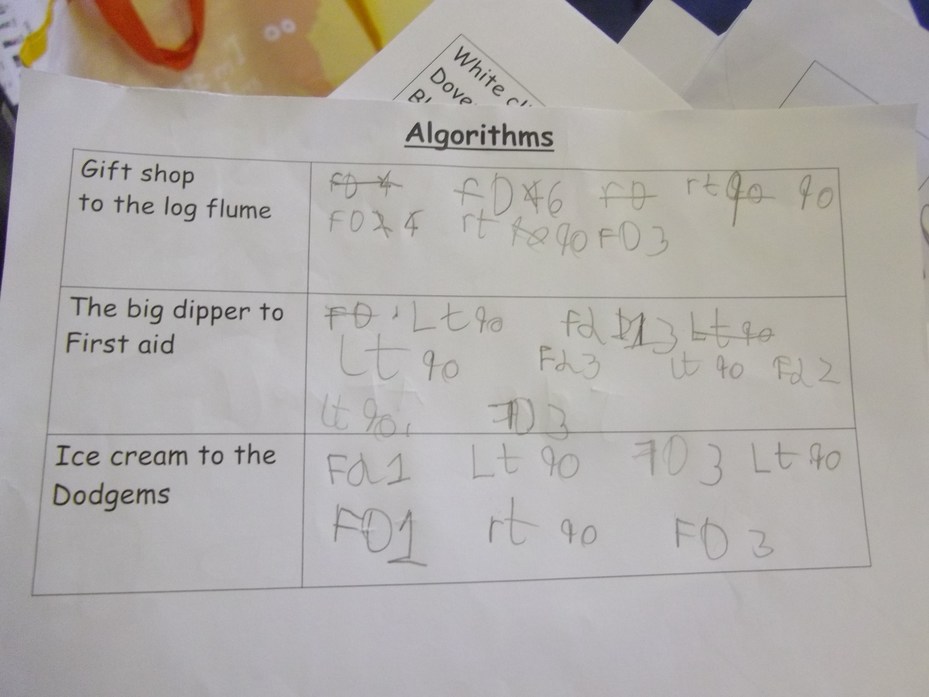 White cl
Dove
Algorithms
Gift shop
to the log flume
FD 4 fD46 FD rt 90 90
FD 4 rt 90 FD 3
The big dipper to
First aid
FD Lt 90 Fd 13 Lt 90
Lt 90 Fd 3 lt 90 Fd 2
lt 90 FD 3
Ice cream to the
Dodgems
Fd 1 Lt 90 FD 3 Lt 90
FD 1 rt 90 FD 3